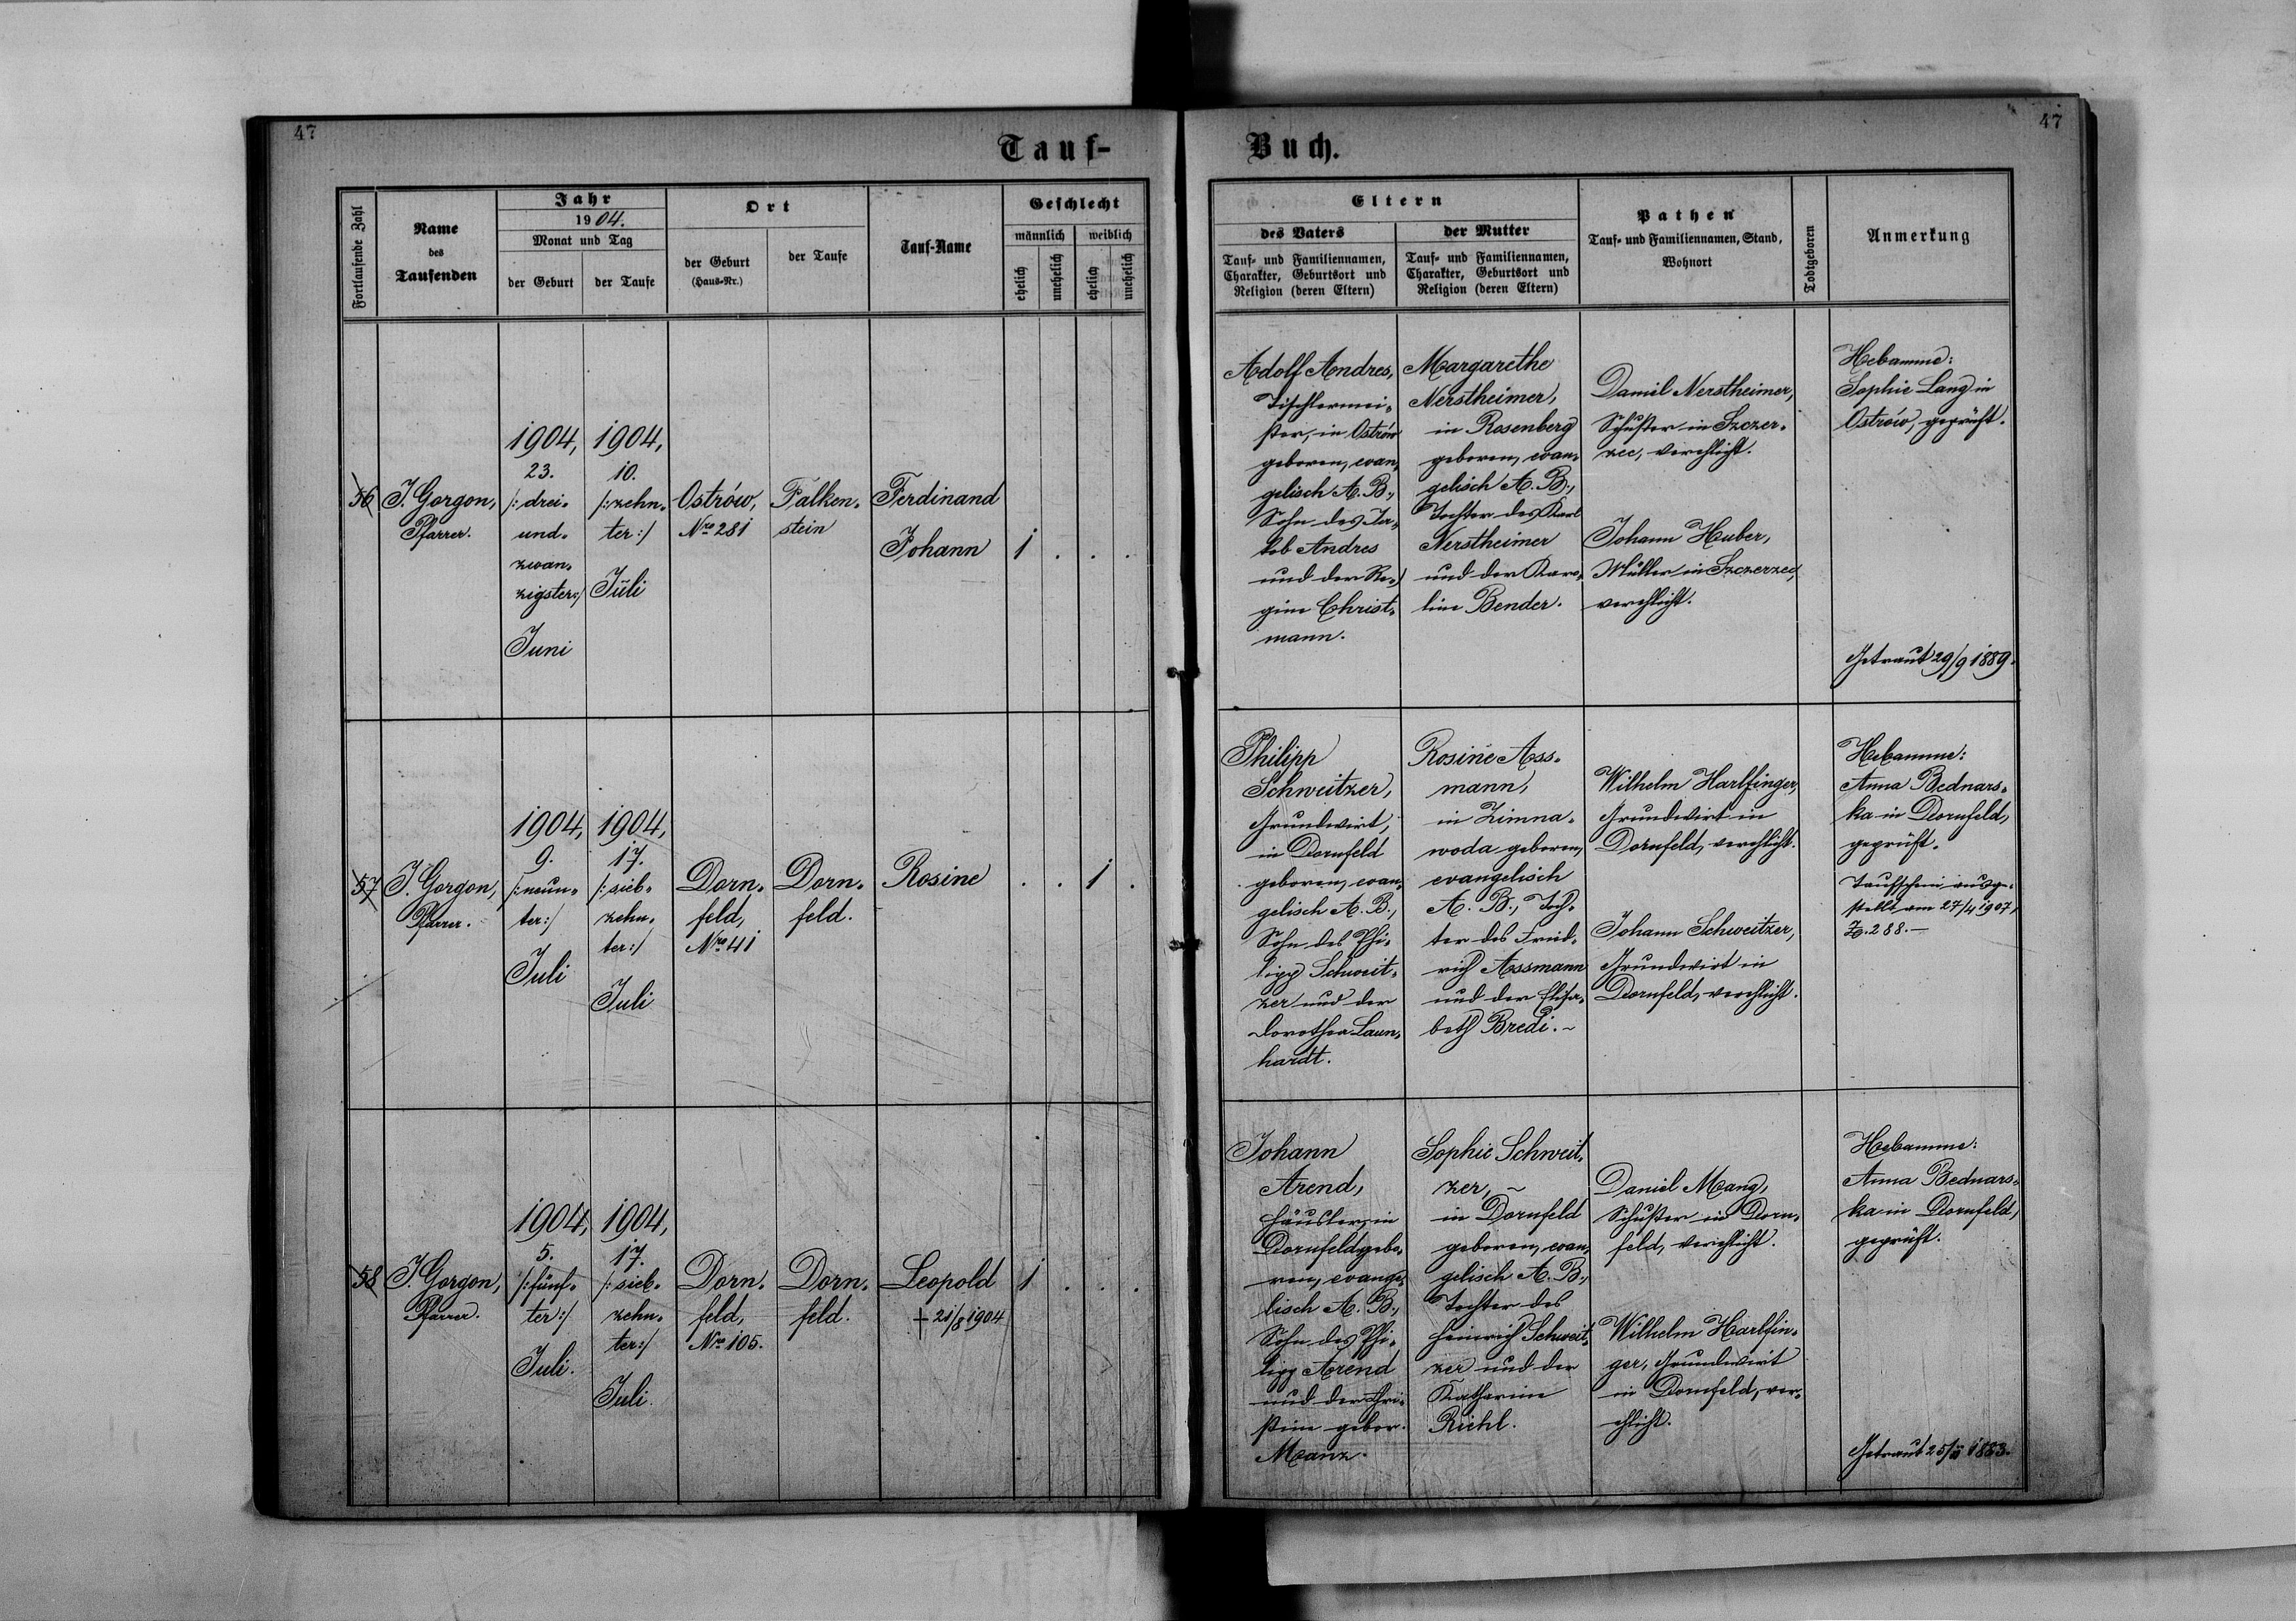 47
47
Tauf-
Buch.
Fortlaufende Zahl
Name
des
Taufenden
Jahr
1904.
Monat und Tag
der Geburt
der Taufe
Ort
der Geburt
(Haus-Nr.)
der Taufe
Tauf-Name
Geschlecht
männlich
weiblich
ehelich
unehelich
ehelich
unehelich
Eltern
des Vaters
Tauf- und Familiennamen,
Charakter, Geburtsort und
Religion (deren Eltern)
der Mutter
Tauf- und Familiennamen,
Charakter, Geburtsort und
Religion (deren Eltern)
Pathen
Tauf- und Familiennamen, Stand,
Wohnort
Todtgeboren
Anmerkung
56
J. Gorgon,
Pfarrer.
1904,
23.
/:drei-
und-
zwan-
zigster:/
Juni
1904,
10.
/:zehn-
ter:/
Juli
Ostrów,
Nro 281
Falken-
stein
Ferdinand
Johann
1 . . .
Adolf Andres,
Tischlermei-
ster, in Ostrów
geboren, evan-
gelisch A. B.,
Sohn des Ja-
kob Andres
und der Re-
gine Christ-
mann.
Margarethe
Nerstheimer,
in Rosenberg
geboren, evan-
gelisch A. B.,
Tochter des Karl
Nerstheimer
und der Karo-
line Bender.
Daniel Nerstheimer,
Schuster in Szczer-
zec, verehlicht.
Johann Huber,
Müller in Szczerzec,
verehlicht.
Hebamme:
Sophie Lang in
Ostrów, geprüft.
Getraut 29/9 1889.
57
J. Gorgon,
Pfarrer.
1904,
9.
/:neun-
ter:/
Juli
1904,
17.
/:sieb-
zehn-
ter:/
Juli
Dorn-
feld,
Nro 41
Dorn-
feld.
Rosine
. . 1 .
Philipp
Schweitzer,
Grundwirt,
in Dornfeld
geboren, evan-
gelisch A. B.,
Sohn des Phi-
lipp Schweit-
zer und der
Dorothea Laun-
hardt.
Rosine Ass-
mann,
in Zimna-
woda geboren,
evangelisch
A. B., Toch-
ter des Fried-
rich Assmann
und der Elisa-
beth Bredi. ~
Wilhelm Harlfinger,
Grundwirt in
Dornfeld, verehlicht.
Johann Schweitzer,
Grundwirt in
Dornfeld, verehlicht.
Hebamme:
Anna Bednars-
ka in Dornfeld,
geprüft.
Taufschein ausge-
stellt am 27/4 1907,
Z. 288.—
58
J. Gorgon,
Pfarrer.
1904,
5.
/:fünf-
ter:/
Juli.
1904,
17.
/:sieb-
zehn-
ter:/
Juli.
Dorn-
feld,
Nro 105.
Dorn-
feld.
Leopold
† 21/8 1904
1 . . .
Johann
Arend,
Häusler, in
Dornfeld gebo-
ren, evange-
lisch A. B.,
Sohn des Phi-
lipp Arend
und der Chri-
stine gebor.
Manz.
Sophie Schweit-
zer, ~
in Dornfeld
geboren, evan-
gelisch A. B.,
Tochter des
Heinrich Schweit-
zer und der
Katharine
Riehl.
Daniel Mang,
Schuster in Dorn-
feld, verehlicht.
Wilhelm Harlfin-
ger, Grundwirt
in Dornfeld, ver-
ehlicht.
Hebamme:
Anna Bednars-
ka in Dornfeld,
geprüft.
Getraut 25/11 1883.